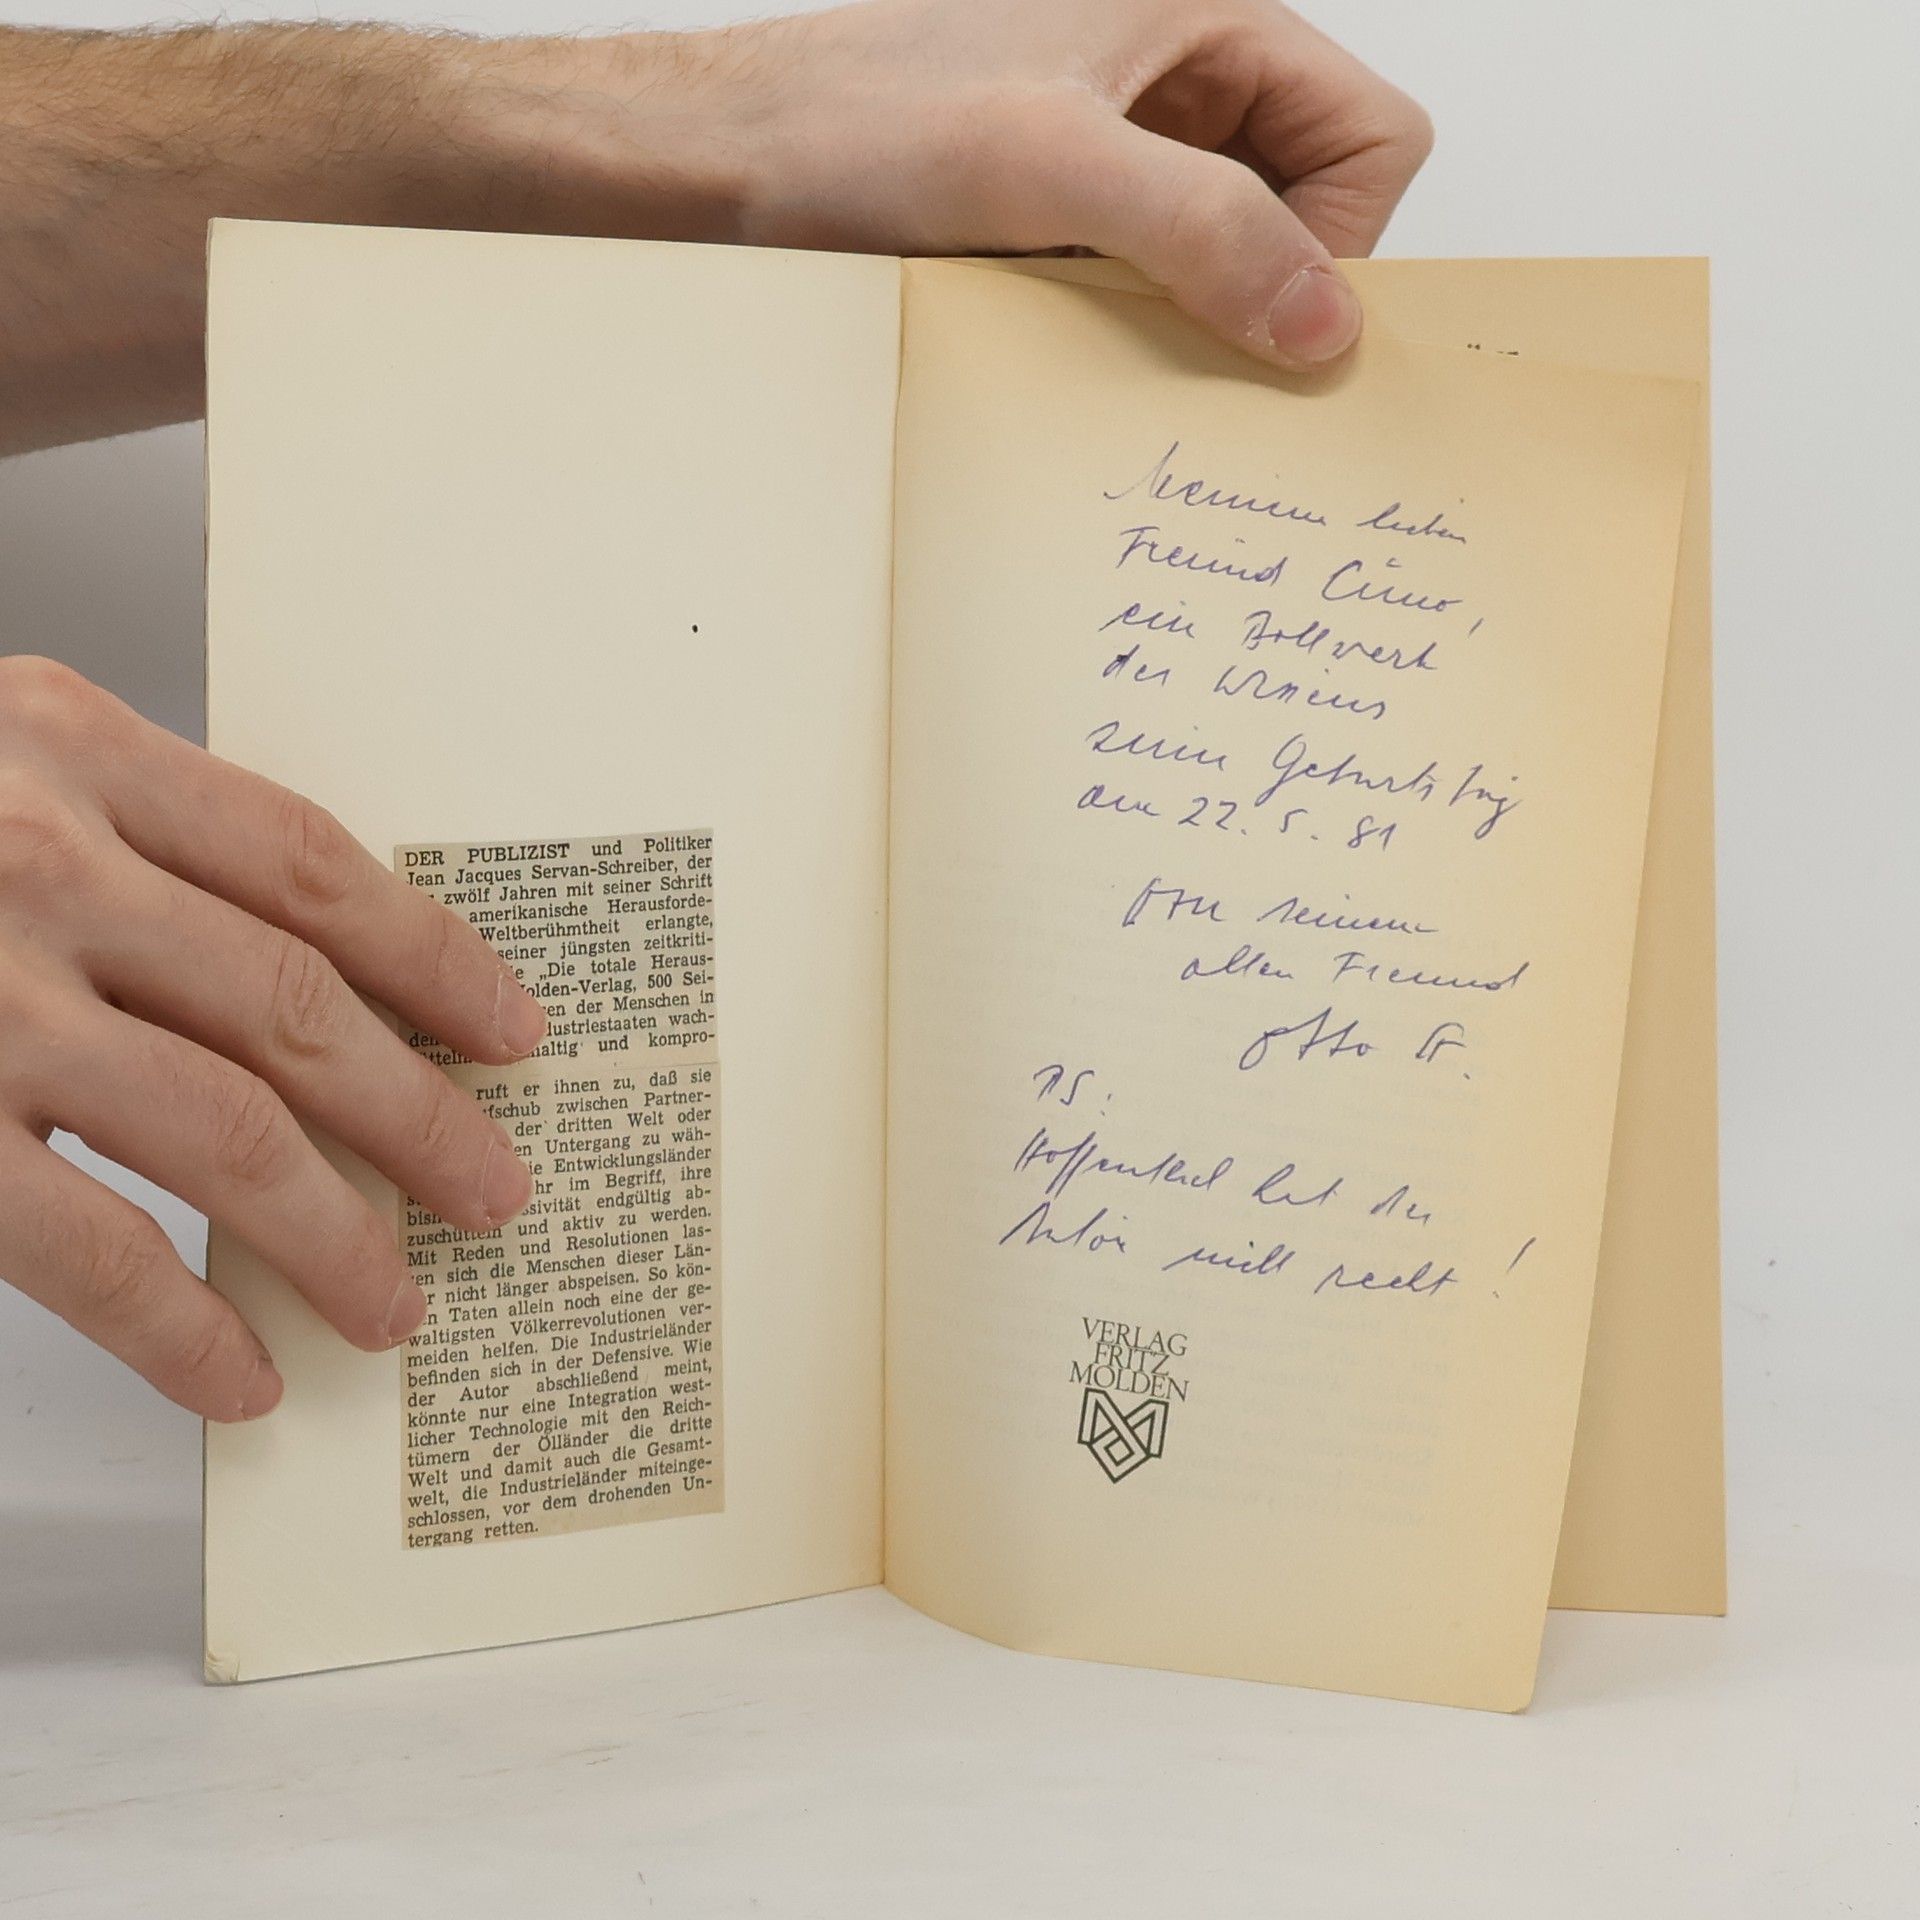 DER PUBLIZIST und Politiker
Jean Jacques Servan-Schreiber, der
zwölf Jahren mit seiner Schrift
amerikanische Herausforde-
Weltberühmtheit erlangte,
seiner jüngsten zeitkriti-
„Die totale Heraus-
Molden-Verlag, 500 Sei-
der Menschen in
dustriestaaten wach-
haltig und kompro-
ruft er ihnen zu, daß sie
fschub zwischen Partner-
der dritten Welt oder
en Untergang zu wäh-
ie Entwicklungsländer
hr im Begriff, ihre
bish ssivität endgültig ab-
zuschütteln und aktiv zu werden.
Mit Reden und Resolutionen las-
sen sich die Menschen dieser Län-
der nicht länger abspeisen. So kön-
nen Taten allein noch eine der ge-
waltigsten Völkerrevolutionen ver-
meiden helfen. Die Industrieländer
befinden sich in der Defensive. Wie
der Autor abschließend meint,
könnte nur eine Integration west-
licher Technologie mit den Reich-
tümern der Ölländer die dritte
Welt und damit auch die Gesamt-
welt, die Industrieländer miteinge-
schlossen, vor dem drohenden Un-
tergang retten.
Meinem lieben
Freund Cuno,
ein Bollwerk
des Wissens
zum Geburtstag
am 22. 5. 81
von seinem
alten Freund
Otto
PS:
Hoffentlich hat der
Autor nicht recht!
VERLAG
FRITZ
MOLDEN